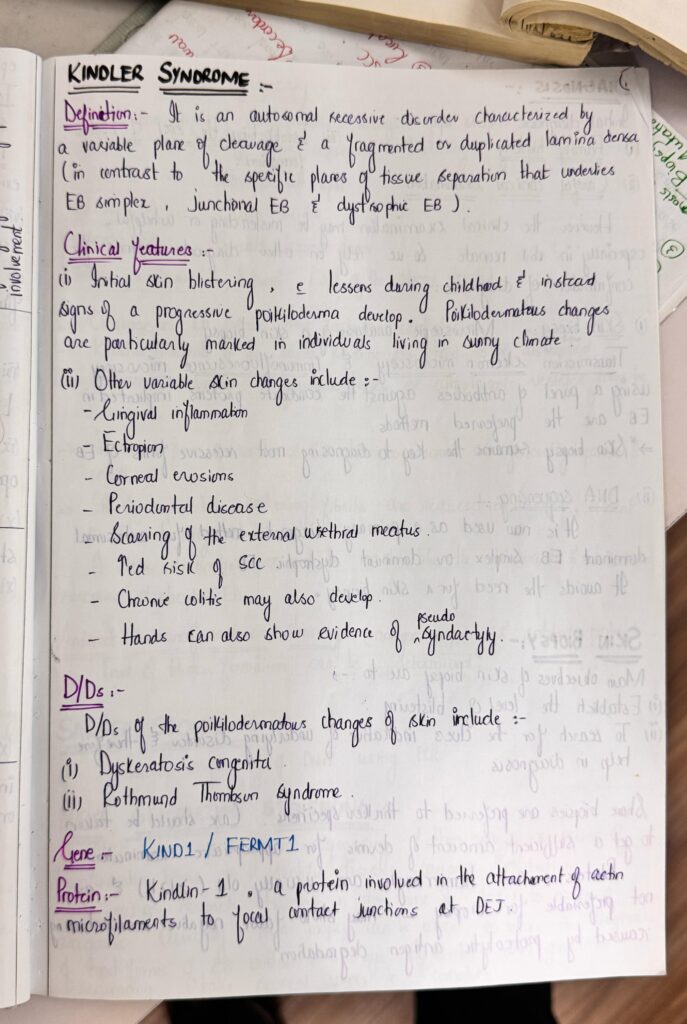 KINDLER SYNDROME :-
Definition :- It is an autosomal recessive disorder characterized by
a variable plane of cleavage & a fragmented or duplicated lamina densa
(in contrast to the specific planes of tissue separation that underlies
EB simplex, Junctional EB & dystrophic EB).
Clinical features :-
(i) Initial skin blistering, c lessens during childhood & instead
signs of a progressive poikiloderma develop. Poikilodermatous changes
are particularly marked in individuals living in sunny climate.
(ii) Other variable skin changes include :-
- Gingival inflammation
- Ectropion
- Corneal erosions
- Periodontal disease
- Scarring of the external urethral meatus.
- ↑ed risk of SCC
- Chronic colitis may also develop.
- Hands can also show evidence of pseudo syndactyly.
D/Ds :-
D/Ds of the poikilodermatous changes of skin include :-
(i) Dyskeratosis congenita.
(ii) Rothmund Thomson Syndrome.
Gene :- KIND1 / FERMT1
Protein :- Kindlin-1, a protein involved in the attachment of actin
microfilaments to focal contact junctions at DEJ.
involvement